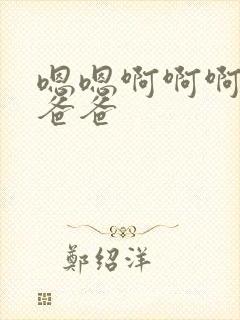 嗯嗯啊啊啊
爸爸
鄭绍洋